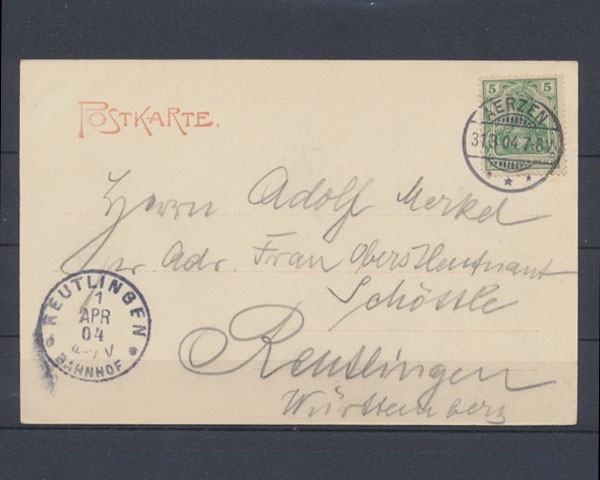 POSTKARTE.
5 5
AERZEN
31.3.04.7-8
Herrn Adolf Merkel
pr Adr. Frau Oberstleutnant
Schöttle
Reutlingen
Württemberg
REUTLINGEN
1
APR
04
BAHNHOF